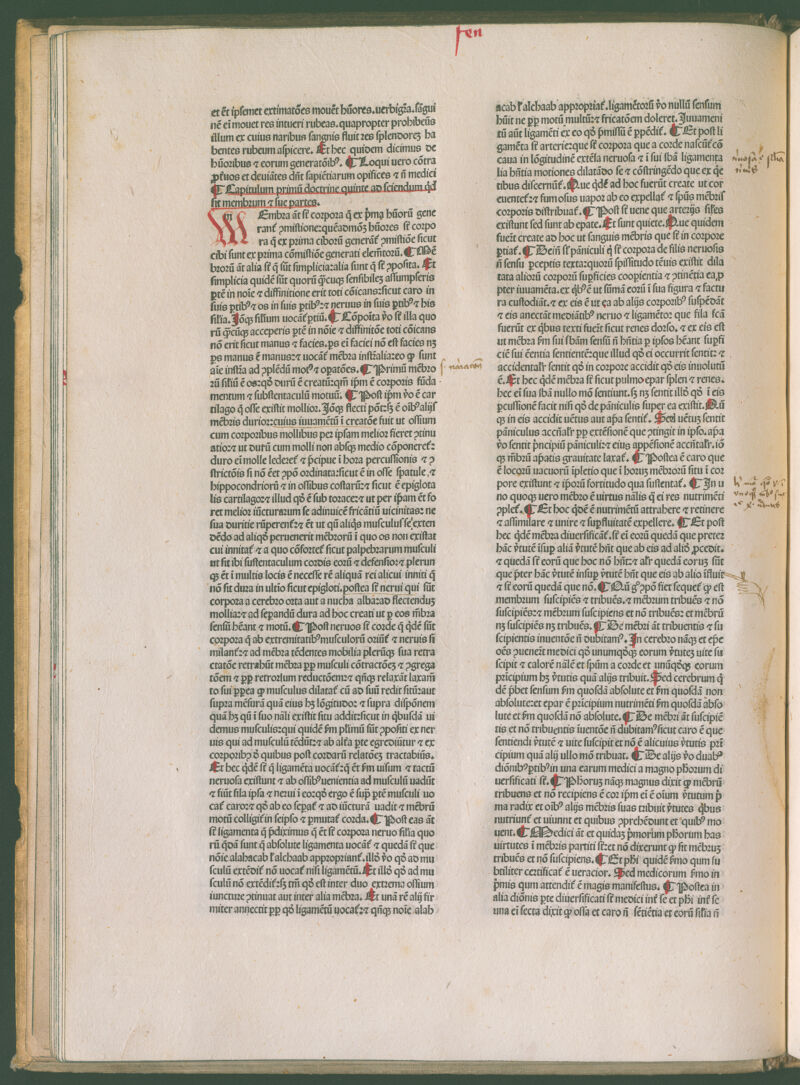 fen
et ēt ipsemet extimatões mouēt hūores. uerbigr̄a. sāgui
nē ei mouet res intueri rubeas. quapropter prohibeũs
illum ex cuius naribus sangnis fluit res splendores ha
bentes rubeum aspicere. Et hec quidem dicimus de
hūoribus ⁊ eorum generatōibꝰ. ¶ Loqui uero cōtra
ꝓtuos et deuiātes dn̄t sapiētiarum opifices ⁊ n̄ medici
¶ Capitulum primū doctrine quinte ad sciendum qd̄
sit membrum ⁊ sue partes.
MEmbra āt st̄ corpora q̄ ex p̄ma hūorū gene
rant̄ ꝯmistione: queadmōꝫ hūores st̄ corpo
ra q̄ ex prima ciborū generāt̄ ꝯmistiōe sicut
cibi sunt ex prima cōmistiōe generati elemētorū. ¶ Mē
brorū āt alia st̄ q̄ sūt simplicia: alia sunt q̄ st̄ ꝯposita. Et
simplicia quidē sūt quorū q̄cūqꝫ sensibileꝫ assumpseris
ptē in noīe ⁊ diffinitione erit toti cōicans: sicut caro in
suis ptibꝰ ⁊ os in suis ptibꝰ: ⁊ neruus in suis ptibꝰ ⁊ his
sil̄ia. Iōqꝫ sil̄ium uocāt̄ ptiū. ¶ Cōpoīta v̄o st̄ illa quo
rū q̄cūqꝫ acceperis ptē in nōie ⁊ diffinitōe toti cōicans
nō erit sicut manus ⁊ facies. ps ei faciei nō est facies nꝫ
ps manus ē manus: ⁊ uocāt̄ mēbra instr̄alia: eo ꝙ sunt
aīe instīa ad ꝯplēdū motꝰ ⁊ opatōes. ¶ Primū mēbro
rū sil̄iū ē os: qd̄ durū ē creatū: qm̄ ip̄m ē corporis fūda
mentum ⁊ substentaculū motuū. ¶ Post ip̄m v̄o ē car
tilago q̄ osse existit mollior. Iōqꝫ flecti pōt: sꝫ ē oībꝰ alijs
mēbris durior: cuius iuuamētū ī creatōe fuit ut ossium
cum corporibus mollibus pez ipsam melior fieret ꝯtinu
atio: ⁊ ut durū cum molli non absqꝫ medio cōponeret̄:
duro ei molle lederet̄ ⁊ p̄cipue ī hora percussionis ⁊ ꝯ
strictōis si nō eēt ꝯpō ordinata: sicut ē in osse spatule, ⁊
hippocondriorū ⁊ in ossibus costarū: ⁊ sicut ē epiglota
lis cartilago: ⁊ illud qd̄ ē sub torace: ⁊ ut per ip̄am ēt fo
ret melior iūcturarum se adinuicē fricātiū uicinitas: ne
sua duritie rūperent̄: ⁊ ēt ut qn̄ aliq̄s musculus se exten
dēdo ad aliqd̄ peruenerit mēbrorū ī quo os non existat
cui innitat̄ ⁊ a quo cōfortet̄ sicut palpebrarum musculi
ut sit ibi sustentaculum cordis eorū ⁊ defensio: ⁊ plerun
qꝫ ēt ī multis locis ē necesse rē aliquā rei alicui inniti q̄
nō sit dura in ultīo sicut epigloti. postea st̄ nerui qui sūt
corpora a cerebro orta aut a nucha alba: ad flectendūꝫ
mollia: ⁊ ad sepandū dura ad hoc creati ut ꝑ eos mēbra
sensū hēant ⁊ motū. ¶ Post neruos st̄ corde q̄ qd̄ē sūt
corpora q̄ ab extremitatibꝰ musculorū oriūt̄ ⁊ neruis si
milant̄: ⁊ ad mēbra tēdentes mobilia plerūqꝫ sua retra
ctatōe retrahūt mēbra pp musculi cōtractōeꝫ ⁊ ꝯgrega
tōem ⁊ pp retrorlum reductōem: ⁊ qn̄qꝫ relaxāt laxam̄
to sui ppea ꝙ musculus dilatat̄ cū ad suū redit sitū: aut
supra mēsurā quā eius hꝫ lōgitudo: ⁊ supra disponem
quā hꝫ qn̄ ī suo nāli existit situ addit: sicut in qbusdā ui
demus musculis: qui quidē s̄m pl̄imū sūt ꝯpositi ex ner
uis qui ad musculū tēdūt: ⁊ ab alt̄a pte egrediūtur ⁊ ex
corporibꝰ ē quibus post cordarū relatōeꝫ tractabiūs.
Et hec qd̄ē st̄ q̄ ligamēta uocāt̄: q̄ ēt s̄m uisum ⁊ tactū
neruosa existunt ⁊ ab ossibꝰ uenientia ad musculū uadūt
⁊ siūt fila ipsa ⁊ nerui ī corqd̄ ergo ē supꝰ ptē musculi uo
cat̄ caro: ⁊ qd̄ ab eo sepat̄ ⁊ ad iūcturā uadit ⁊ mēbrū
motū colligit̄ in seipso ⁊ pmutat̄ corda. ¶ Post eas āt
st̄ ligamenta q̄ p̄diximus q̄ ēt st̄ corpora neruo sil̄ia quo
rū q̄dā sunt q̄ absolute ligamenta uocāt̄ ⁊ quedā st̄ que
nōie alahacab ꝉ alchaab appropriant̄. illd̄ v̄o qd̄ ad mu
sculū extēdit̄ nō uocat̄ nisi ligamētū. Et illd̄ qd̄ ad mu
sculū nō extēdit̄: sꝫ tm̄ qd̄ est inter duo extrema ossium
iuncture ꝯtinuat aut inter alia mēbra. Et unā rē alij fir
miter annectit pp qd̄ ligamētū uocat̄: ⁊ qn̄qꝫ noīe alah
acab ꝉ alchaab appropriat̄. ligamētorū v̄o nullū sensum
hūit ne pp motū multū: ⁊ fricatōem doleret. Iuuameni
tū aūt ligamēti ex eo qd̄ p̄missū ē ppēdit̄. ¶ Et post li
gamēta st̄ arterie: que st̄ corpora que a corde nascūt̄ cō
caua in lōgitudinē extēsa neruosa ⁊ ī sui sb̄a ligamenta
lia hn̄tia motiones dilatādo se ⁊ cōstrīgēdo que ex qe
tibus discernūt̄. Que qd̄ē ad hoc fuerūt create ut cor
euentet̄: ⁊ fumosus uapor ab eo expellat̄ ⁊ sp̄us mēbris
corporis distribuat̄. ¶ Post st̄ uene que arterijs sil̄es
existunt sed sunt ab epate. Et sunt quiete. Que quidem
fuer̄t create ad hoc ut sanguis mēbris que st̄ in corpore
ptiat̄. ¶ Dein̄ st̄ pāniculi q̄ st̄ corpora de filis neruosis
n̄ sensu ꝑceptis texta: quorū spissitudo tēuis existit dila
tata aliorū corporū supficies coopientia ⁊ ꝯtinētia ea, ꝓ
pter iuuamēta. ex qbꝰ ē ut sūmā eorū ī sua figura ⁊ factu
ra custodiāt. ⁊ ex eis ē ut ea ab alijs corporibꝰ suspēdāt
⁊ eis anectāt mediātibꝰ neruo ⁊ ligamēto: que fila scā
fuerūt ex qbus texti fuer̄t sicut renes dorso. ⁊ ex eis est
ut mēbra s̄m sui sb̄am sensū n̄ hn̄tia ꝑ ipsos hēant supfi
ciē sui ēentia sentientē: que illud qd̄ ei occurrit sentit: ⁊
accidental̄r sentit qd̄ in corpore accidit qd̄ eis inuolutū
ē. Et hec qd̄ē mēbra st̄ sicut pulmo epar splen ⁊ renes.
hec ei sua sb̄a nullo mō sentiunt. sꝫ nꝫ sentit illō qd̄ ī eis
pcussionē facit nisi qd̄ de pāniculis super ea existit. Qn̄
qꝫ in eis accidit uētus aut apā sentit̄. Sed uētus sentit
pāniculus accn̄talr̄ pp extēsionē que ꝯtingit in ipso. apā
v̄o sentit p̄ncipiū pāniculi: ⁊ eius appēsionē accn̄talr̄. iō
qꝫ mēbrū apatis grauitate laxat̄. ¶ Postea ē caro que
ē locorū uacuorū īpletio que ī horuꝫ mēbrorū situ ī cor
pore existunt ⁊ īporū fortitudo qua sustentat̄. ¶ In u
no quoqꝫ uero mēbro ē uirtus nālis q̄ ei res nutrimēti
ꝯplet̄. ¶ Et hoc qd̄ē ē nutrimētū attrahere ⁊ retinere
⁊ assimilare ⁊ unire ⁊ supfluitatē expellere. ¶ Et post
hec qd̄ē mēbra diuersificāt̄. st̄ ei eorū quedā que preter
hāc v̄tutē īsup aliā v̄tutē hn̄t que ab eis ad alio ꝓcedit.
⁊ quedā st̄ eorū que hoc nō hn̄t: ⁊ alr̄ quedā eorūꝫ sūt
que p̄ter hāc v̄tutē insup v̄tutē hn̄t que eis ab alio īfluit
⁊ st̄ eorū quedā que nō. Qn̄ g̊ ꝯpō siet sequet̄ ꝙ est
membrum suscipiēs ⁊ tribuēs. ⁊ mēbrum tribuēs ⁊ nō
suscipiēs: ⁊ mēbrum suscipiens et nō tribuēs: et mēbrū
nꝫ suscipiēs nꝫ tribuēs. ¶ De mēbri āt tribuentis ⁊ su
scipientis inuentōe n̄ dubitam̄ꝰ. In cerebro nāqꝫ et epe
oēs ꝯuener̄t medici qd̄ unumqd̄qꝫ eorum v̄tuteꝫ uite su
scipit ⁊ calorē nālē et sp̄um a corde et unūqd̄qꝫ eorum
p̄ncipium hꝫ v̄tutis quā alijs tribuit. Sed cerebrum q̄
dē p̄bet sensum s̄m quosdā absolute et s̄m quosdā non
absolute: et epar ē p̄ncipium nutrimēti s̄m quosdā abso
lute et s̄m quosdā nō absolute. ¶ De mēbri āt suscipiē
tis et nō tribuentis iuentōe n̄ dubitam̄ꝰ sicut caro ē que
sentiendi v̄tutē ⁊ uite suscipit et nō ē alicuius v̄tutis prī
cipium quā alij ullo mō tribuat. ¶ De alijs v̄o duabꝰ
diōnibꝰ ptibꝰ in una earum medici a magno ph̄orum di
uersificati st̄. ¶ Ph̄orum nāqꝫ magnus dixit ꝙ mēbrū
tribuens et nō recipiens ē cor ip̄m ei ē oīum v̄tutum p̄
ma radix et oībꝰ alijs mēbris suas tribuit v̄tutes qbus
nutriunt̄ et uiuunt et quibus ꝯprehēdunt et quibꝰ mo
uent. ¶ Medici āt et quidaꝫ p̄morum ph̄orum has
uirtutes ī mēbris partiti st̄: et nō dixerunt ꝙ sit mēbrūꝫ
tribuēs et nō suscipiens. ¶ Et ph̄i quidē s̄mo qum su
btiliter certificat̄ ē ueracior. Sed medicorum s̄mo in
p̄mis qum attendit̄ ē magis manifestus. ¶ Postea in
alia diōnis pte diuersificati st̄ medici īnt̄ se et ph̄i īnt̄ se
una ei secta dixit ꝙ ossa et caro n̄ sētiētia et eorū sil̄ia n̄